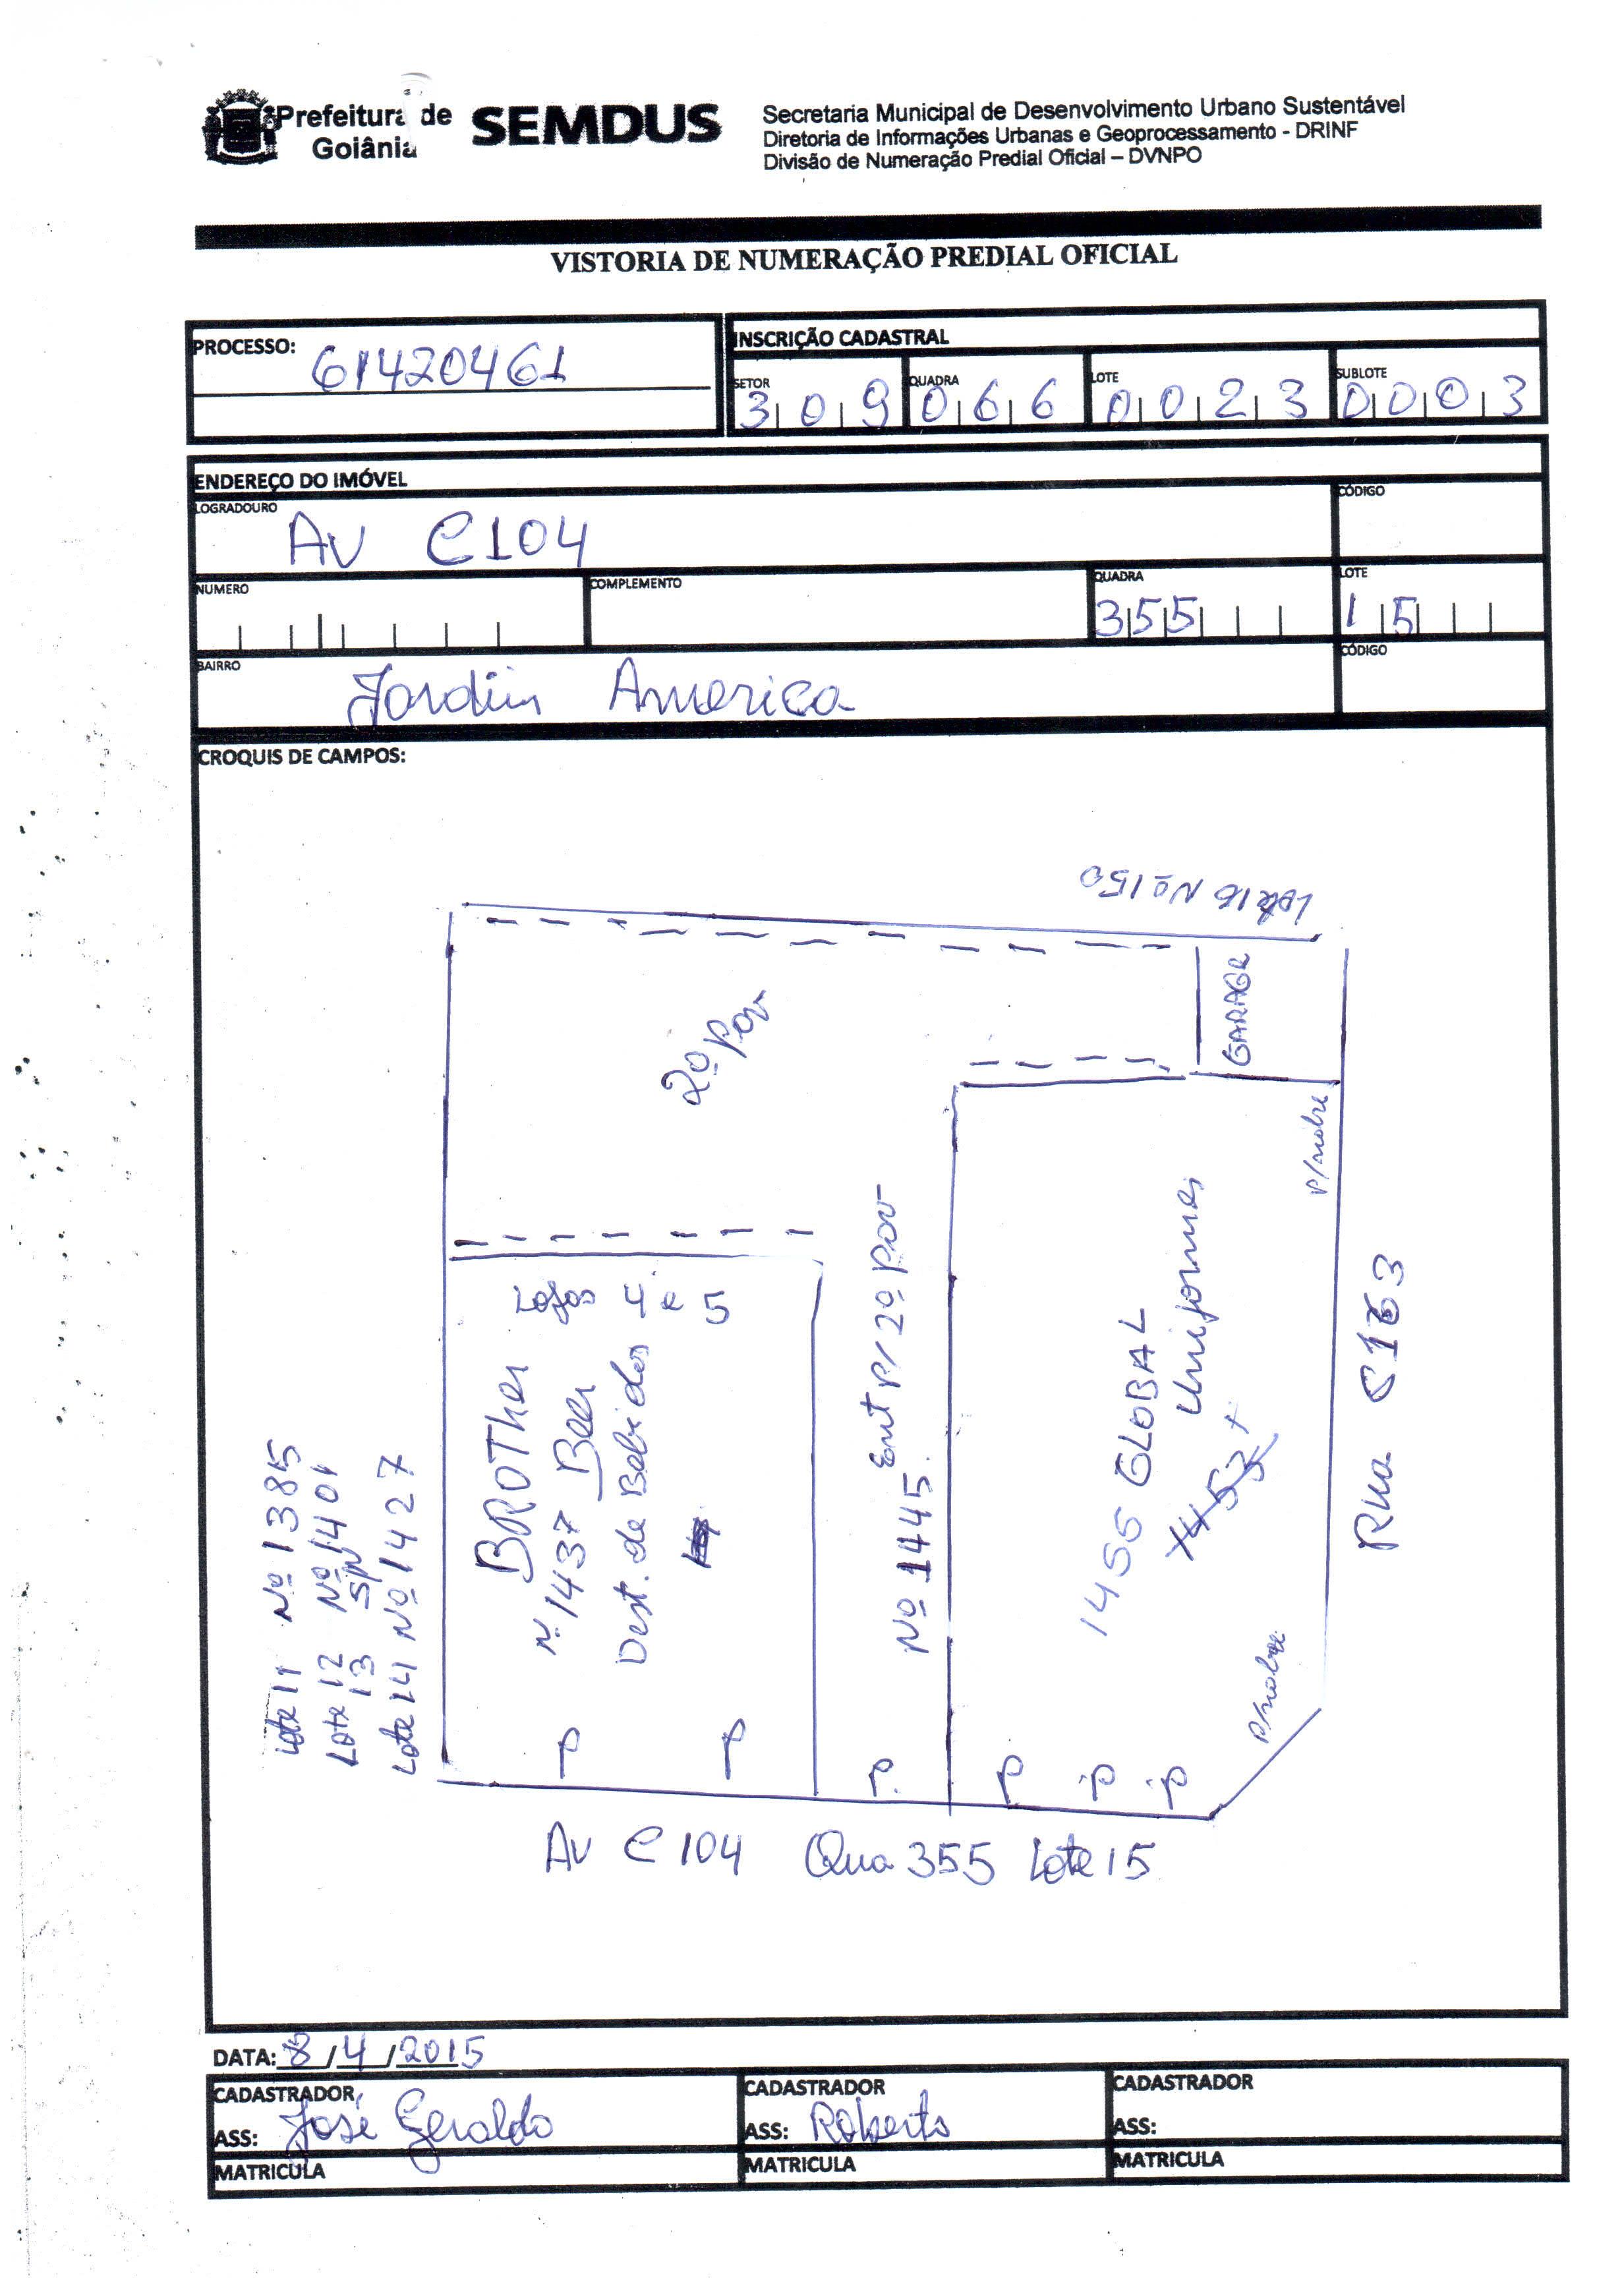 Prefeitura de Goiânia
SEMDUS
Secretaria Municipal de Desenvolvimento Urbano Sustentável
Diretoria de Informações Urbanas e Geoprocessamento - DRINF
Divisão de Numeração Predial Oficial – DVNPO
VISTORIA DE NUMERAÇÃO PREDIAL OFICIAL
PROCESSO: 61420461
INSCRIÇÃO CADASTRAL
SETOR 309 QUADRA 066 LOTE 0023 SUBLOTE 0003
ENDEREÇO DO IMÓVEL
LOGRADOURO Av C104
CÓDIGO
NUMERO
COMPLEMENTO
QUADRA 355
LOTE 15
BAIRRO Jardin America
CÓDIGO
CROQUIS DE CAMPOS:
Lote 16 Nº 150
GARAGE
2º Pav
P/nobre
Lojas 4 e 5
BROTher
nº 1437 Beer
Dest. de Bebidas
Nº 1445 Ent P/ 2º Pav
1455 GLOBAL
Uniformes
1453
Rua C163
P/nobre
Lote 11 Nº 1385
Lote 12 Nº 1401
13 S/N
Lote 14 Nº 1427
P
P
P
P
P
P
Av C104 Qua 355 Lote 15
DATA: 8/4/2015
CADASTRADOR
ASS: José Geraldo
MATRICULA
CADASTRADOR
ASS: Roberto
MATRICULA
CADASTRADOR
ASS:
MATRICULA